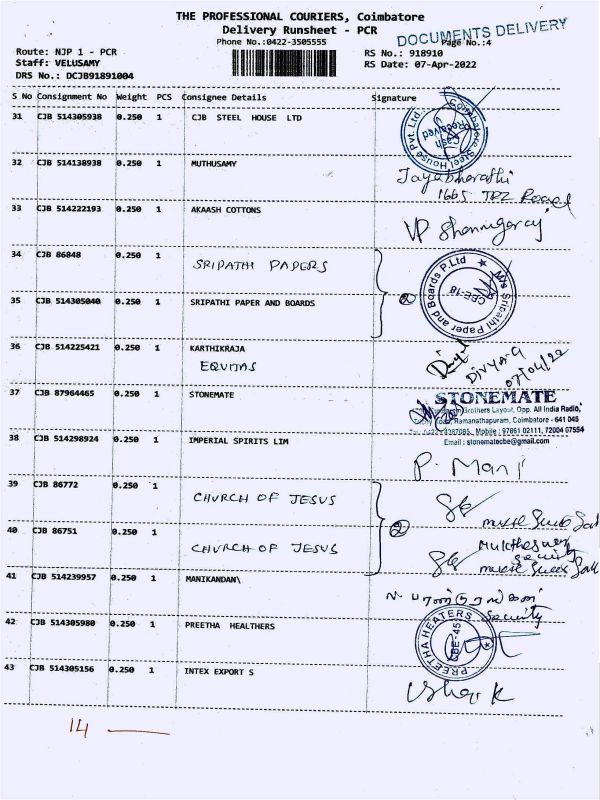 THE PROFESSIONAL COURIERS, Coimbatore
Delivery Runsheet - PCR
DOCUMENTS DELIVERY
Phone No.:0422-3505555
Page No.:4
Route: NJP 1 - PCR
RS No.: 918910
Staff: VELUSAMY
RS Date: 07-Apr-2022
DRS No.: DCJB91891004
S No Consignment No Weight PCS Consignee Details Signature
31 CJB 514305938 0.250 1 CJB STEEL HOUSE LTD
Coimbatore Steel House Pvt. Ltd.
32 CJB 514138938 0.250 1 MUTHUSAMY
Jayabharathi
1665 TRZ Road
33 CJB 514222193 0.250 1 AKAASH COTTONS
VP Shanmugaraj
34 CJB 86848 0.250 1 SRIPATHI PAPERS
35 CJB 514305040 0.250 1 SRIPATHI PAPER AND BOARDS
2
M/s Sripathi Paper and Boards P.Ltd
CBE-18
36 CJB 514225421 0.250 1 KARTHIKRAJA
EQUITAS
Divya-G
07/04/22
37 CJB 87964465 0.250 1 STONEMATE
STONEMATE
Brothers Layout, Opp. All India Radio,
Ramanathapuram, Coimbatore - 641 045
Mobile : 97861 02111, 72004 07554
Email : stonematecbe@gmail.com
38 CJB 514298924 0.250 1 IMPERIAL SPIRITS LIM
P. Mani
39 CJB 86772 0.250 1 CHURCH OF JESUS
40 CJB 86751 0.250 1 CHURCH OF JESUS
2
41 CJB 514239957 0.250 1 MANIKANDAN\
Security
42 CJB 514305980 0.250 1 PREETHA HEALTHERS
PREETHA HEATERS
CBE-45
43 CJB 514305156 0.250 1 INTEX EXPORT S
14